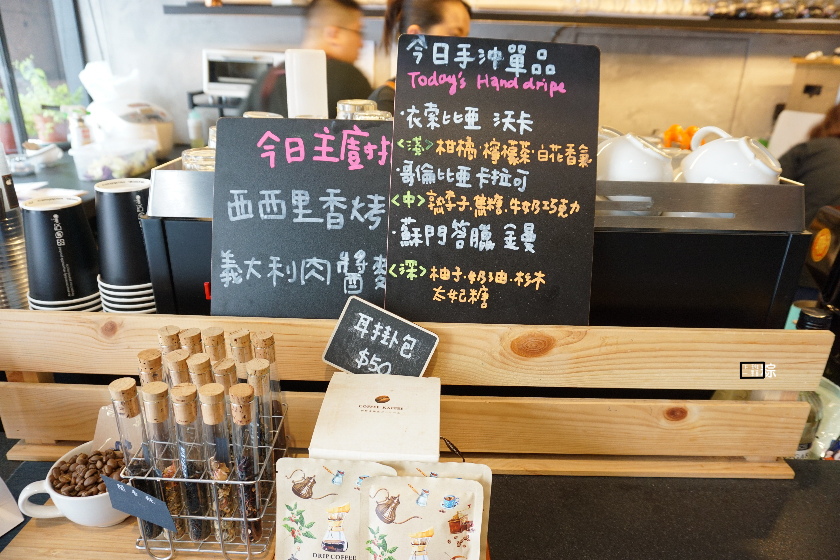 今日手沖單品
Today's Handdripe
·衣索比亞 沃卡
<淺>柑橘·檸檬茶·白花香氣
·哥倫比亞卡拉可
<中>熟李子.焦糖.牛奶巧克力
·蘇門答臘 金曼
<深>柚子·奶油·杉木
太妃糖
今日主廚
西西里香烤
義大利肉醬麥
耳掛包
$50
COFFEE KAFFEE
DRIP COFFEE